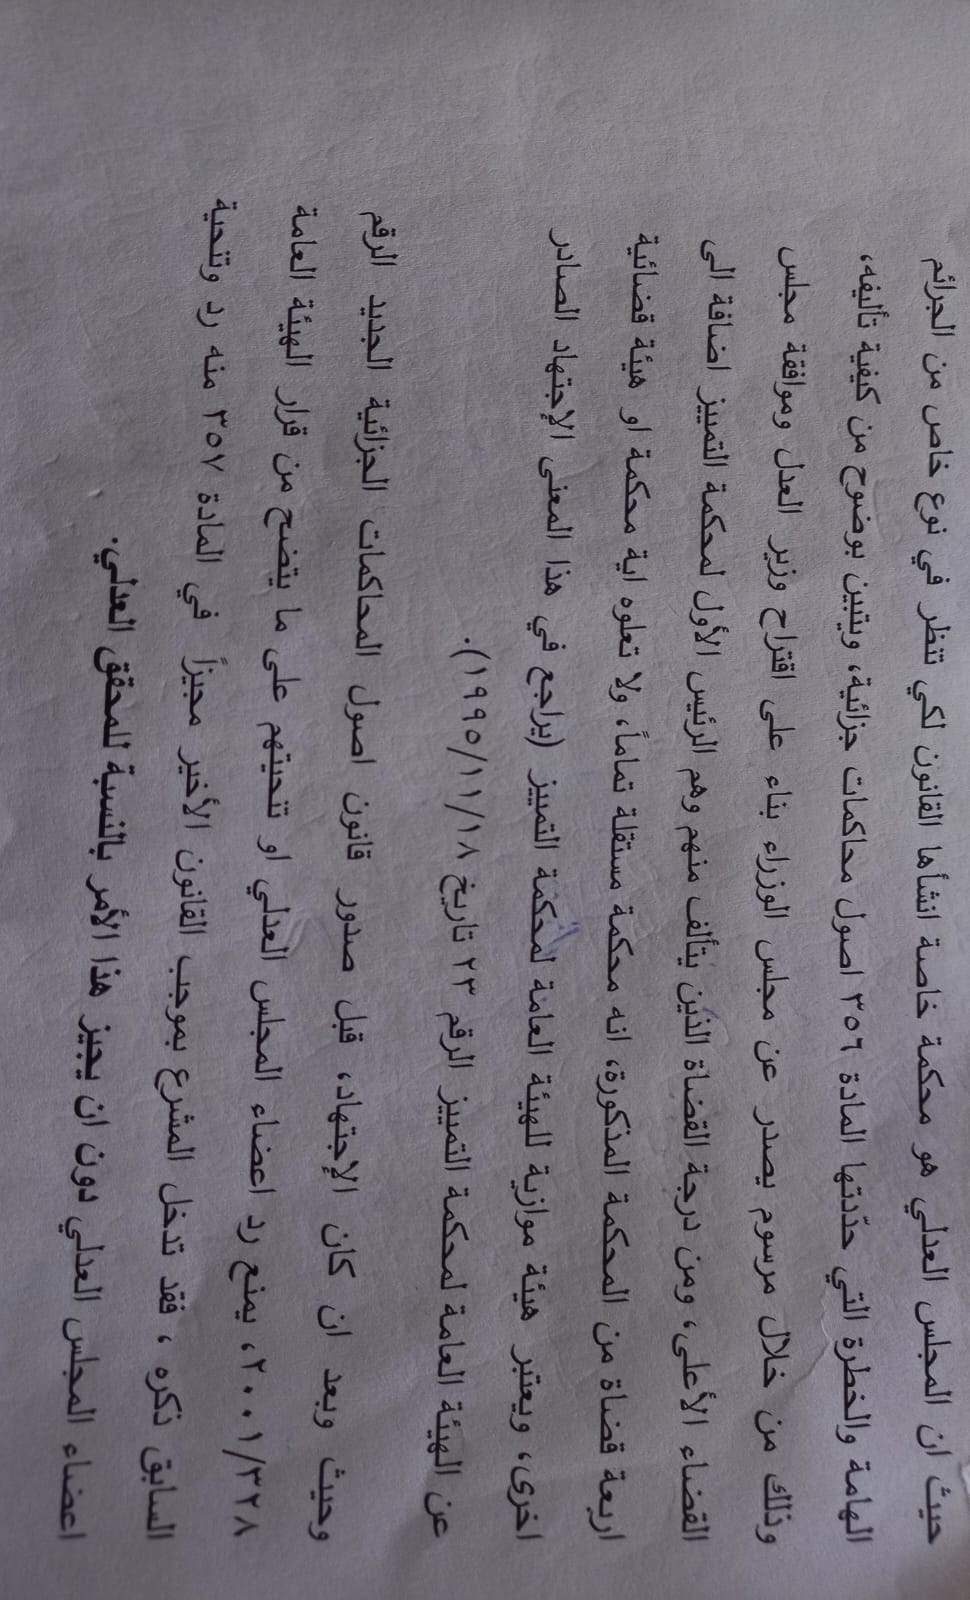 حيث ان المجلس العدلي هو محكمة خاصة انشأها القانون لكي تنظر في نوع خاص من الجرائم
الهامة والخطرة التي حدّدتها المادة ٣٥٦ اصول محاكمات جزائية، ويتبين بوضوح من كيفية تأليفه،
وذلك من خلال مرسوم يصدر عن مجلس الوزراء بناء على اقتراح وزير العدل وموافقة مجلس
القضاء الأعلى، ومن درجة القضاة الذين يتألف منهم وهم الرئيس الأول لمحكمة التمييز اضافة الى
اربعة قضاة من المحكمة المذكورة، انه محكمة مستقلة تماماً، ولا تعلوه اية محكمة او هيئة قضائية
اخرى، ويعتبر هيئة موازية للهيئة العامة لمحكمة التمييز (يراجع في هذا المعنى الإجتهاد الصادر
عن الهيئة العامة لمحكمة التمييز الرقم ٢٣ تاريخ ١٩٩٥/١١/١٨).
وحيث وبعد ان كان الإجتهاد، قبل صدور قانون اصول المحاكمات الجزائية الجديد الرقم
٢٠٠١/٣٢٨، يمنع رد اعضاء المجلس العدلي او تنحيتهم على ما يتضح من قرار الهيئة العامة
السابق ذكره، فقد تدخل المشرع بموجب القانون الأخير مجيزاً في المادة ٣٥٧ منه رد وتنحية
اعضاء المجلس العدلي دون ان يجيز هذا الأمر بالنسبة للمحقق العدلي.